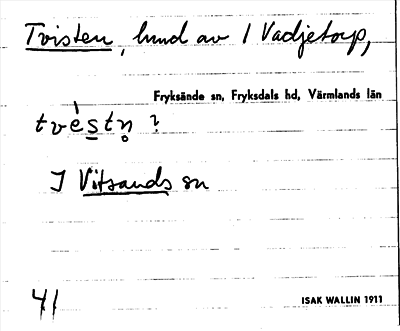 Tvisten, hund av 1 Vadjetorp,
Fryksände sn, Fryksdals hd, Värmlands län
tvèstn̥ ?
I Vitsands sn
41
ISAK WALLIN 1911